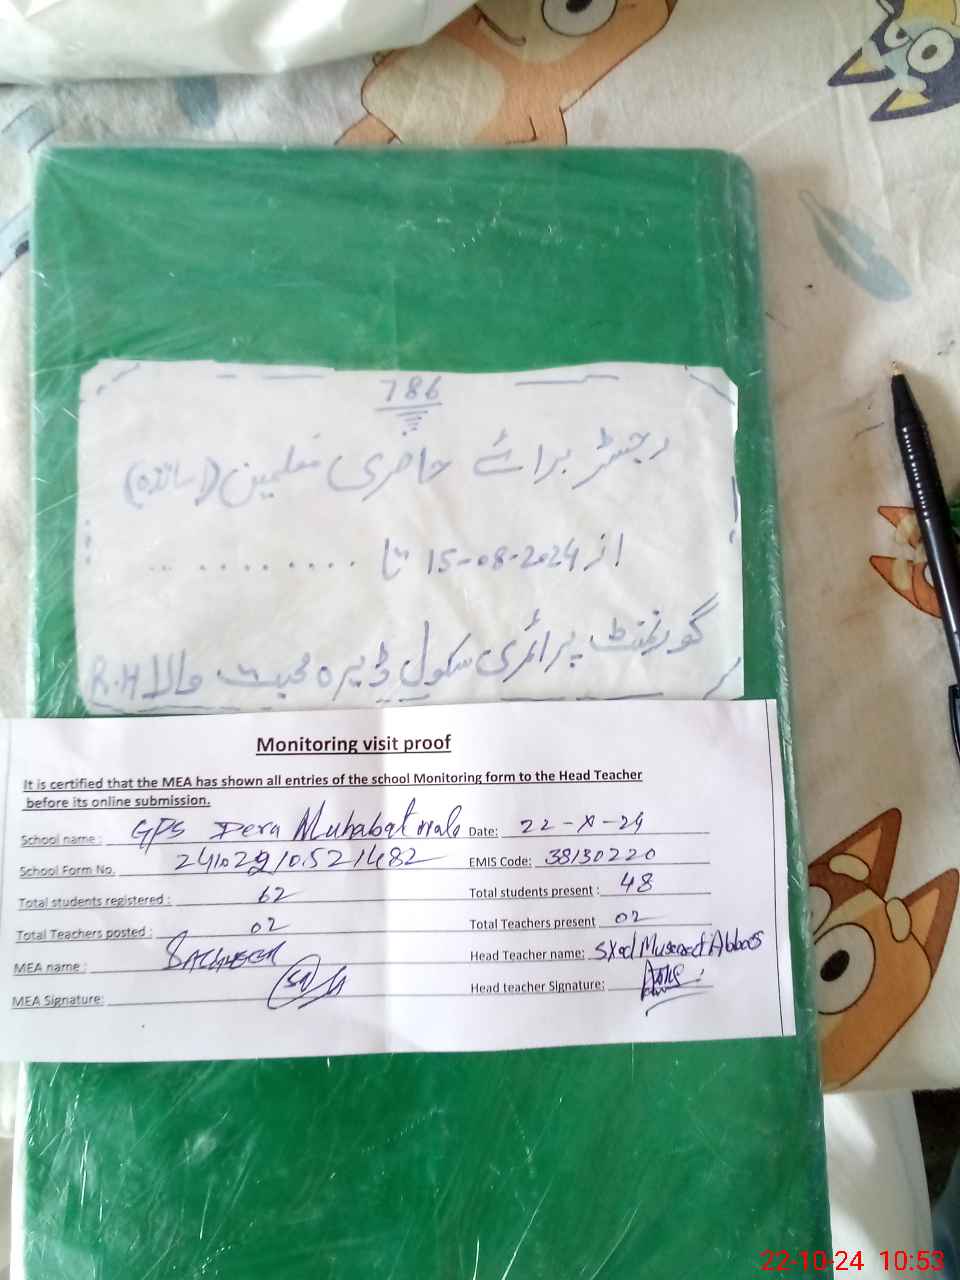 786
رجسٹر برائے حاضری معلمین (اساتذہ)
از 15-08-2024 تا ............
گورنمنٹ پرائمری سکول ڈیرہ محبت والا R.H
Monitoring visit proof
It is certified that the MEA has shown all entries of the school Monitoring form to the Head Teacher
before its online submission.
School name: GPS Dera Muhabat wala Date: 22-X-24
School Form No. EMIS Code: 38130220
Total students registered: 62 Total students present: 48
Total Teachers posted: 02 Total Teachers present 02
MEA name: Head Teacher name: Syed Musarat Abbas
MEA Signature: Head teacher Signature:
22-10-24 10:53